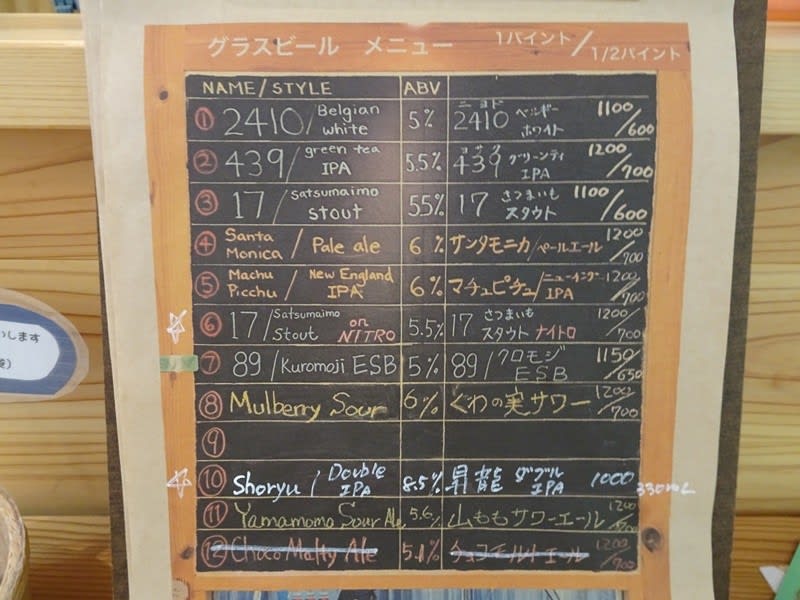 グラスビール メニュー 1パイント/1/2パイント
NAME/STYLE ABV
① 2410/Belgian white 5% 2410 ニヨド ベルギーホワイト 1100/600
② 439/green tea IPA 5.5% 439 ヨサク グリーンティ IPA 1200/700
③ 17/satsumaimo stout 5.5% 17 さつまいも スタウト 1100/600
④ Santa Monica / Pale ale 6% サンタモニカ/ペールエール 1200/700
⑤ Machu Picchu / New England IPA 6% マチュピチュ/ニューイングランド IPA 1200/700
⑥ 17/Satsumaimo Stout on NITRO 5.5% 17 さつまいも スタウト ナイトロ 1200/700
⑦ 89/Kuromoji ESB 5% 89/クロモジ ESB 1150/650
⑧ Mulberry Sour 6% ぐわの実サワー 1200/700
⑨
⑩ Shoryu / Double IPA 8.5% 昇龍 ダブル IPA 1000 330mL
⑪ Yamamomo Sour Ale 5.6% 山ももサワーエール 1200/700
⑫ Choco Malty Ale 5.1% チョコモルトエール 1200/700
いします